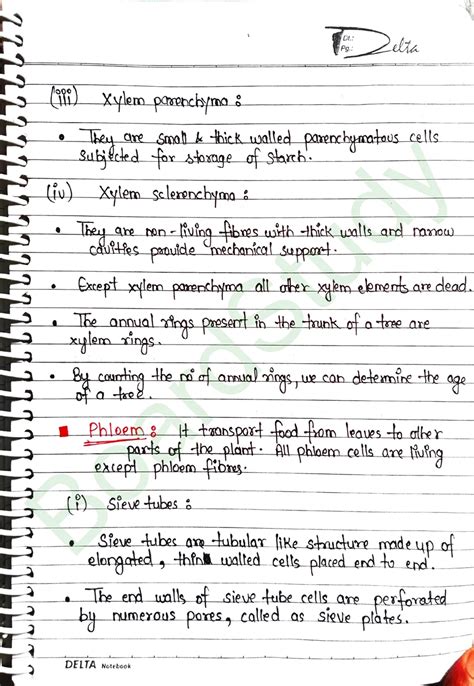 Dt.:
Pg.:
Delta
(iii) Xylem parenchyma :
• They are small & thick walled parenchymatous cells
subjected for storage of starch.
(iv) Xylem sclerenchyma :
• They are non-living fibres with thick walls and narrow
cavities provide mechanical support.
• Except xylem parenchyma all other xylem elements are dead.
• The annual rings present in the trunk of a tree are
xylem rings.
• By counting the no of annual rings, we can determine the age
of a tree.
■ Phloem : It transport food from leaves to other
parts of the plant. All phloem cells are living
except phloem fibres.
(i) Sieve tubes :
• Sieve tubes are tubular like structure made up of
elongated, thin walled cells placed end to end.
• The end walls of sieve tube cells are perforated
by numerous pores, called as sieve plates.
DELTA Notebook
BoardStudy